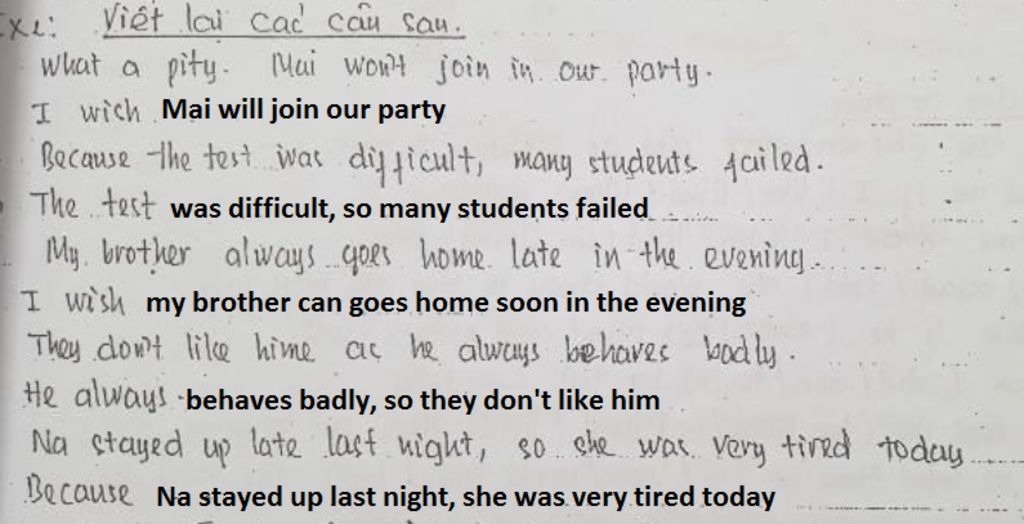 Exe: Viết lại các câu sau.
What a pity. Mai won't join in our party.
I wich Mai will join our party
Because the test was difficult, many students failed.
The test was difficult, so many students failed
My brother always goes home late in the evening.
I wish my brother can goes home soon in the evening
They don't like hime as he always behaves badly.
He always behaves badly, so they don't like him
Na stayed up late last night, so she was very tired today
Because Na stayed up last night, she was very tired today